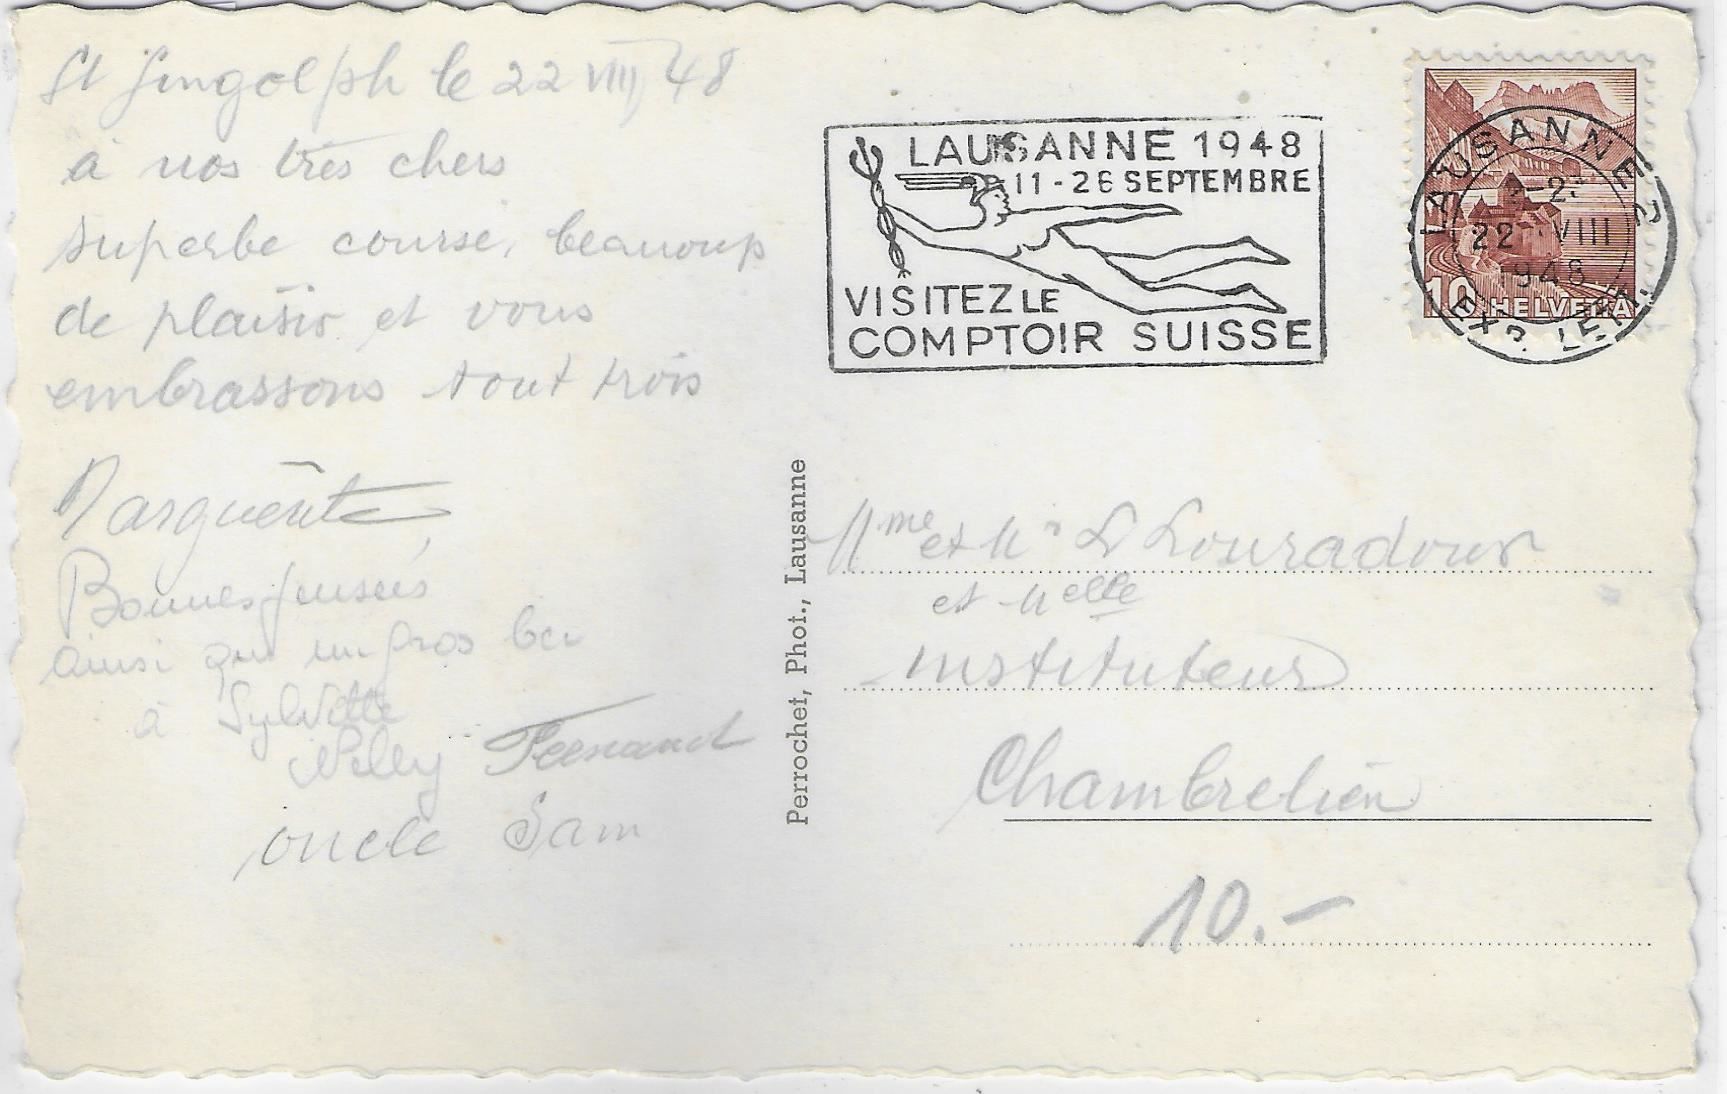 St Gingolph le 22 VIII 48
à nos très chers
superbe course, beaucoup
de plaisir et vous
embrassons tout trois
Marguerite,
Bonnes pensées
ainsi qu'un gros bec
à Sylvette
Nelly Fernand
oncle Sam
LAUSANNE 1948
11-26 SEPTEMBRE
VISITEZ LE
COMPTOIR SUISSE
LAUSANNE 2
22.VIII
1948
EXP. LETT.
10 HELVETIA
Perrochet, Phot., Lausanne
Mme et Mr L Louradour
et Melle
instituteur
Chambrelien
10.-